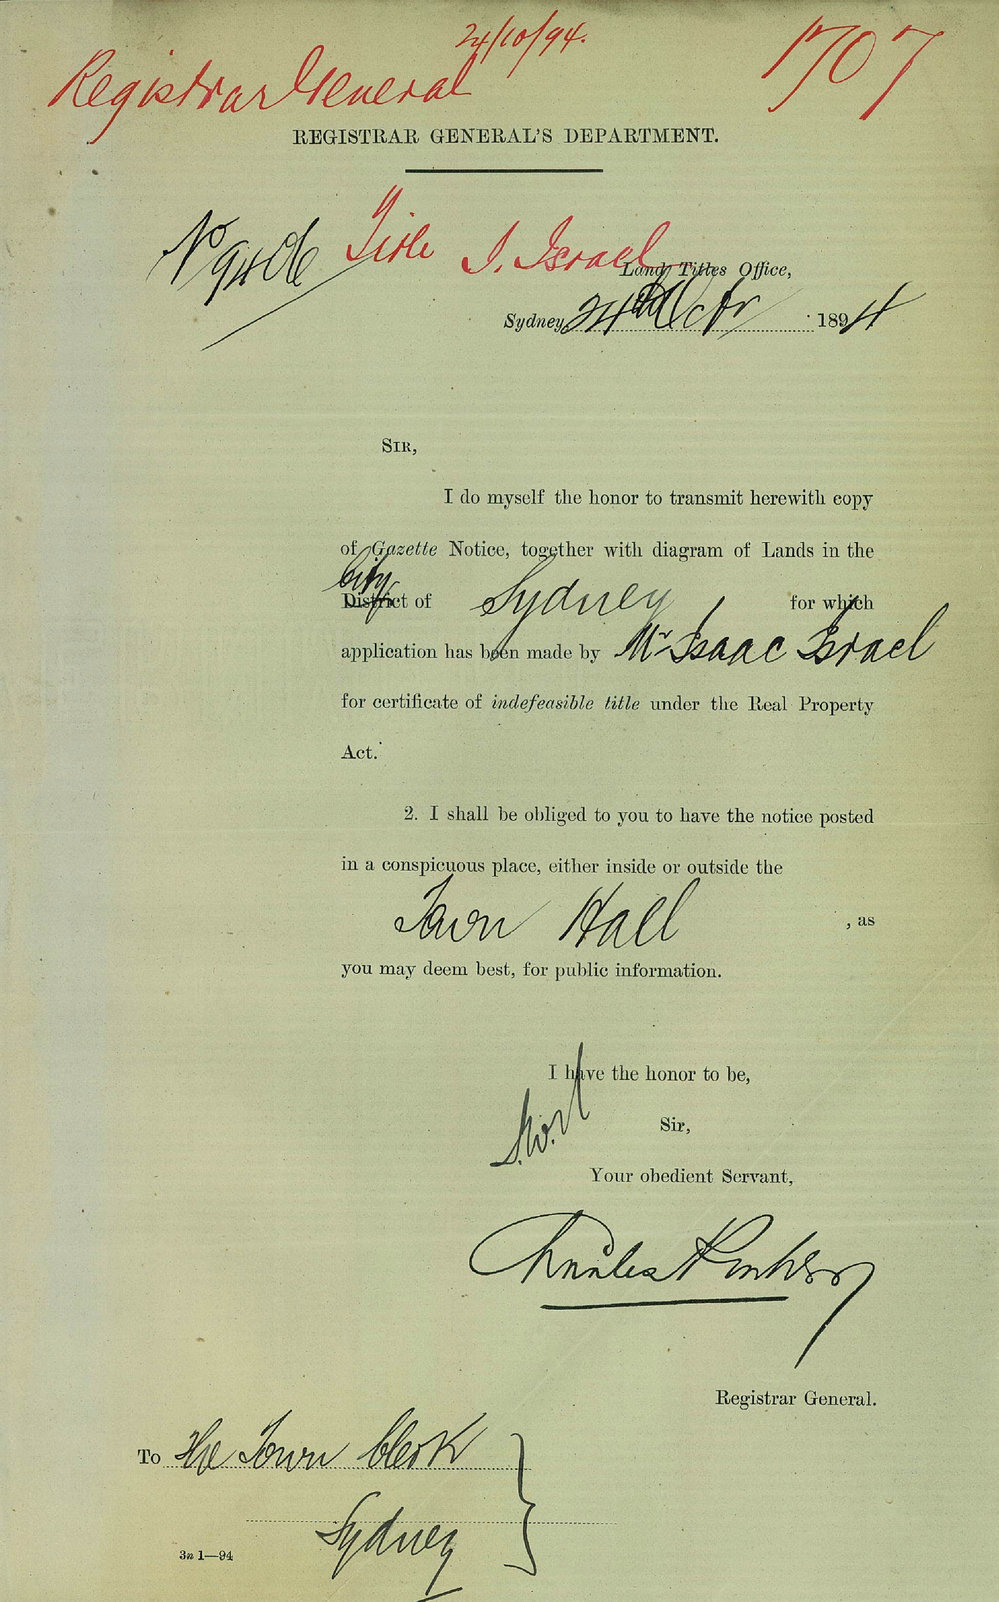 24/10/94.
Registrar General
1707
REGISTRAR GENERAL'S DEPARTMENT.
No 9406 Title I. Israel
Land Titles Office,
Sydney 24th Octr 1894
SIR,
I do myself the honor to transmit herewith copy
of Gazette Notice, together with diagram of Lands in the
City
District of Sydney for which
application has been made by Mr Isaac Israel
for certificate of indefeasible title under the Real Property
Act.
2. I shall be obliged to you to have the notice posted
in a conspicuous place, either inside or outside the
Town Hall , as
you may deem best, for public information.
I have the honor to be,
Sir,
Your obedient Servant,
Charles
Registrar General.
To The Town Clerk
Sydney
3n 1—94